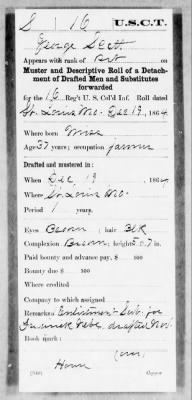 S | 16 | U.S.C.T.
George Scott
Appears with rank of Pvt on
Muster and Descriptive Roll of a Detach-
ment of Drafted Men and Substitutes
forwarded
for the 16 Reg't U. S. Col'd Inf. Roll dated
St. Louis Mo. Dec 19, 1864.
Where born
Age 37 years; occupation farmer
Drafted and mustered in:
When Dec 19, 1864.
Where St. Louis Mo.
Period 1 years.
Eyes Brown; hair Blk
Complexion Brown; height 5 ft. 7 in.
Paid bounty and advance pay, $ 100
Bounty due $ 100
Where credited
Company to which assigned
Remarks: Enlistment Sub. for
drafted
Book mark:
(over)
Copyist.